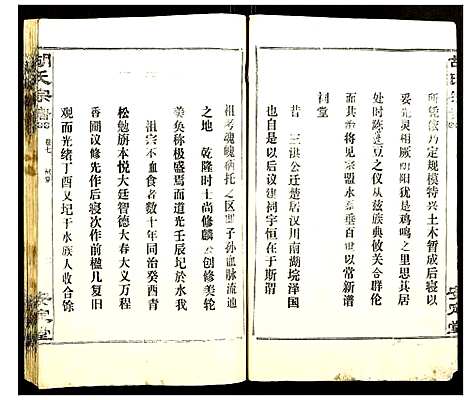 所凭依乃定规模特兴土木暂成后寝以
妥先灵相厥阴阳犹是鸡鸣之里思其居
处时陈豆之仪从兹族典攸关合群伦
而其治将见宗盟永垂百世以常新谱
祠堂
昔三洪公迁楚居汉川南湖垸泽国
也是以后议建祠宇恒在于斯谓
祖考魂魄栖托之区子孙血脉流通
之地 乾隆时士尚修麟公创修美轮
美奂称极盛焉而道光壬辰圮於水我
祖宗不血食者数十年同治癸酉青
松勉旃本悦大廷智德大春大义万程
香圃议修先作后寝次作前楹几复旧
观而光绪丁酉又圮于水族人收合馀
胡氏宗谱
卷七
安定堂
安定堂